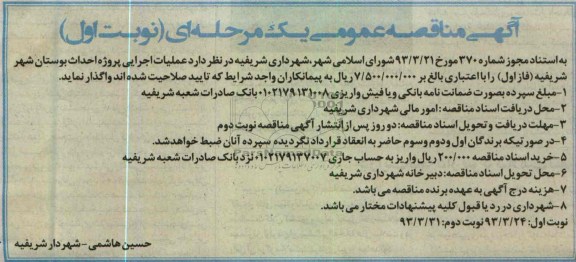 آگهی مناقصه عمومی یک مرحله‌ای (نوبت اول)
به استناد مجوز شماره ۳۷۰ مورخ ۹۳/۳/۲۱ شورای اسلامی شهر، شهرداری شریفیه در نظر دارد عملیات اجرایی پروژه احداث بوستان شهر
شریفیه (فاز اول) را با اعتباری بالغ بر ۷/۵۰۰/۰۰۰/۰۰۰ ریال به پیمانکاران واجد شرایط که تایید صلاحیت شده اند واگذار نماید.
۱-مبلغ سپرده بصورت ضمانت نامه بانکی ویا فیش واریزی ۰۱۰۲۱۷۹۱۳۱۰۰۸ بانک صادرات شعبه شریفیه
۲-محل دریافت اسناد مناقصه: امور مالی شهرداری شریفیه
۳-مهلت دریافت و تحویل اسناد مناقصه: دو روز پس از انتشار آگهی مناقصه نوبت دوم
۴-در صورتیکه برندگان اول ودوم وسوم حاضر به انعقاد قرارداد نگردیده سپرده آنان ضبط خواهدشد.
۵-خرید اسناد مناقصه ۲۰۰/۰۰۰ ریال واریز به حساب جاری ۰۱۰۲۱۷۹۱۳۷۰۰۷ نزد بانک صادرات شعبه شریفیه
۶-محل تحویل اسناد مناقصه: دبیرخانه شهرداری شریفیه
۷-هزینه درج آگهی به عهده برنده مناقصه می باشد.
۸-شهرداری در رد یا قبول کلیه پیشنهادات مختار می باشد.
نوبت اول: ۹۳/۳/۲۴ نوبت دوم: ۹۳/۳/۳۱
حسین هاشمی - شهردار شریفیه